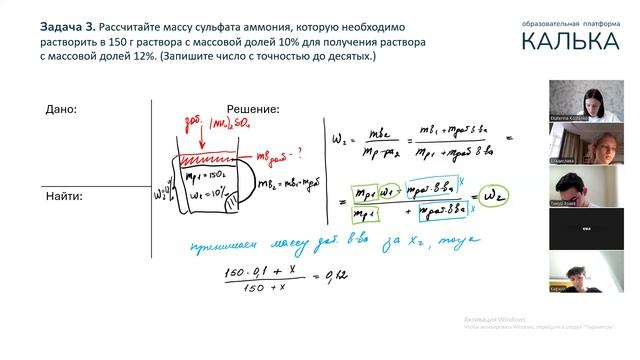 Задача 3. Рассчитайте массу сульфата аммония, которую необходимо
растворить в 150 г раствора с массовой долей 10% для получения раствора
с массовой долей 12%. (Запишите число с точностью до десятых.)
образовательная платформа
КАЛЬКА
Дано:
Решение:
доб. (NH₄)₂SO₄
mв доб - ?
mр₁ = 150г
ω₁ = 10%
mв₂ = mв₁ + mдоб
ω₂ = mв₂ / mр-ра₂ = (mв₁ + mдоб в-ва) / (mр₁ + mдоб в-ва) =
= (mр₁ ω₁ + mдоб. в-ва x) / (mр₁ + mдоб. в-ва x) = ω₂
Найти:
принимаем массу доб. в-ва за x г, тогда
(150 · 0,1 + x) / (150 + x) = 0,12
Ekaterina Kostenko
Владислава
ева
Кирилл
Активация Windows
Чтобы активировать Windows, перейдите в раздел "Параметры".